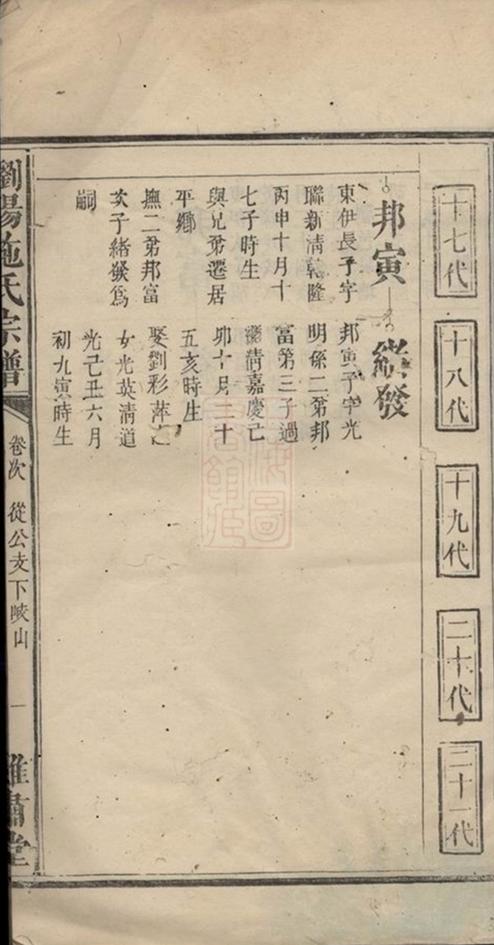 十七代
十八代
十九代
二十代
二十一代
邦寅
東伊長子字
聯新清乾隆
丙申十月十
七子時生
與兄弟遷居
平鄉
撫二弟邦富
次子緒發為
嗣
緒發
邦寅子字光
明係二弟邦
富第三子過
繼清嘉慶己
卯十月二十
五亥時生
娶劉彩萍
女光英清道
光己丑六月
初九寅時生
瀏陽施氏宗譜
卷次 從公支下峽山 一
雍肅堂